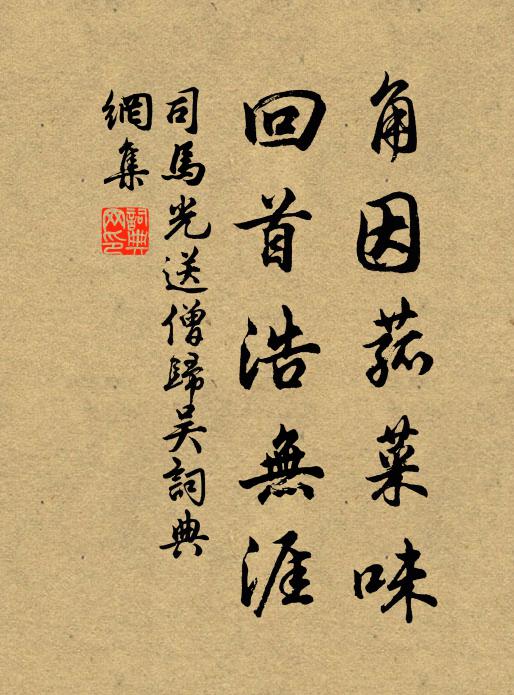 角因菰菜味
回首浩無涯
司馬光送僧歸吴詞典
網集
詞典網印